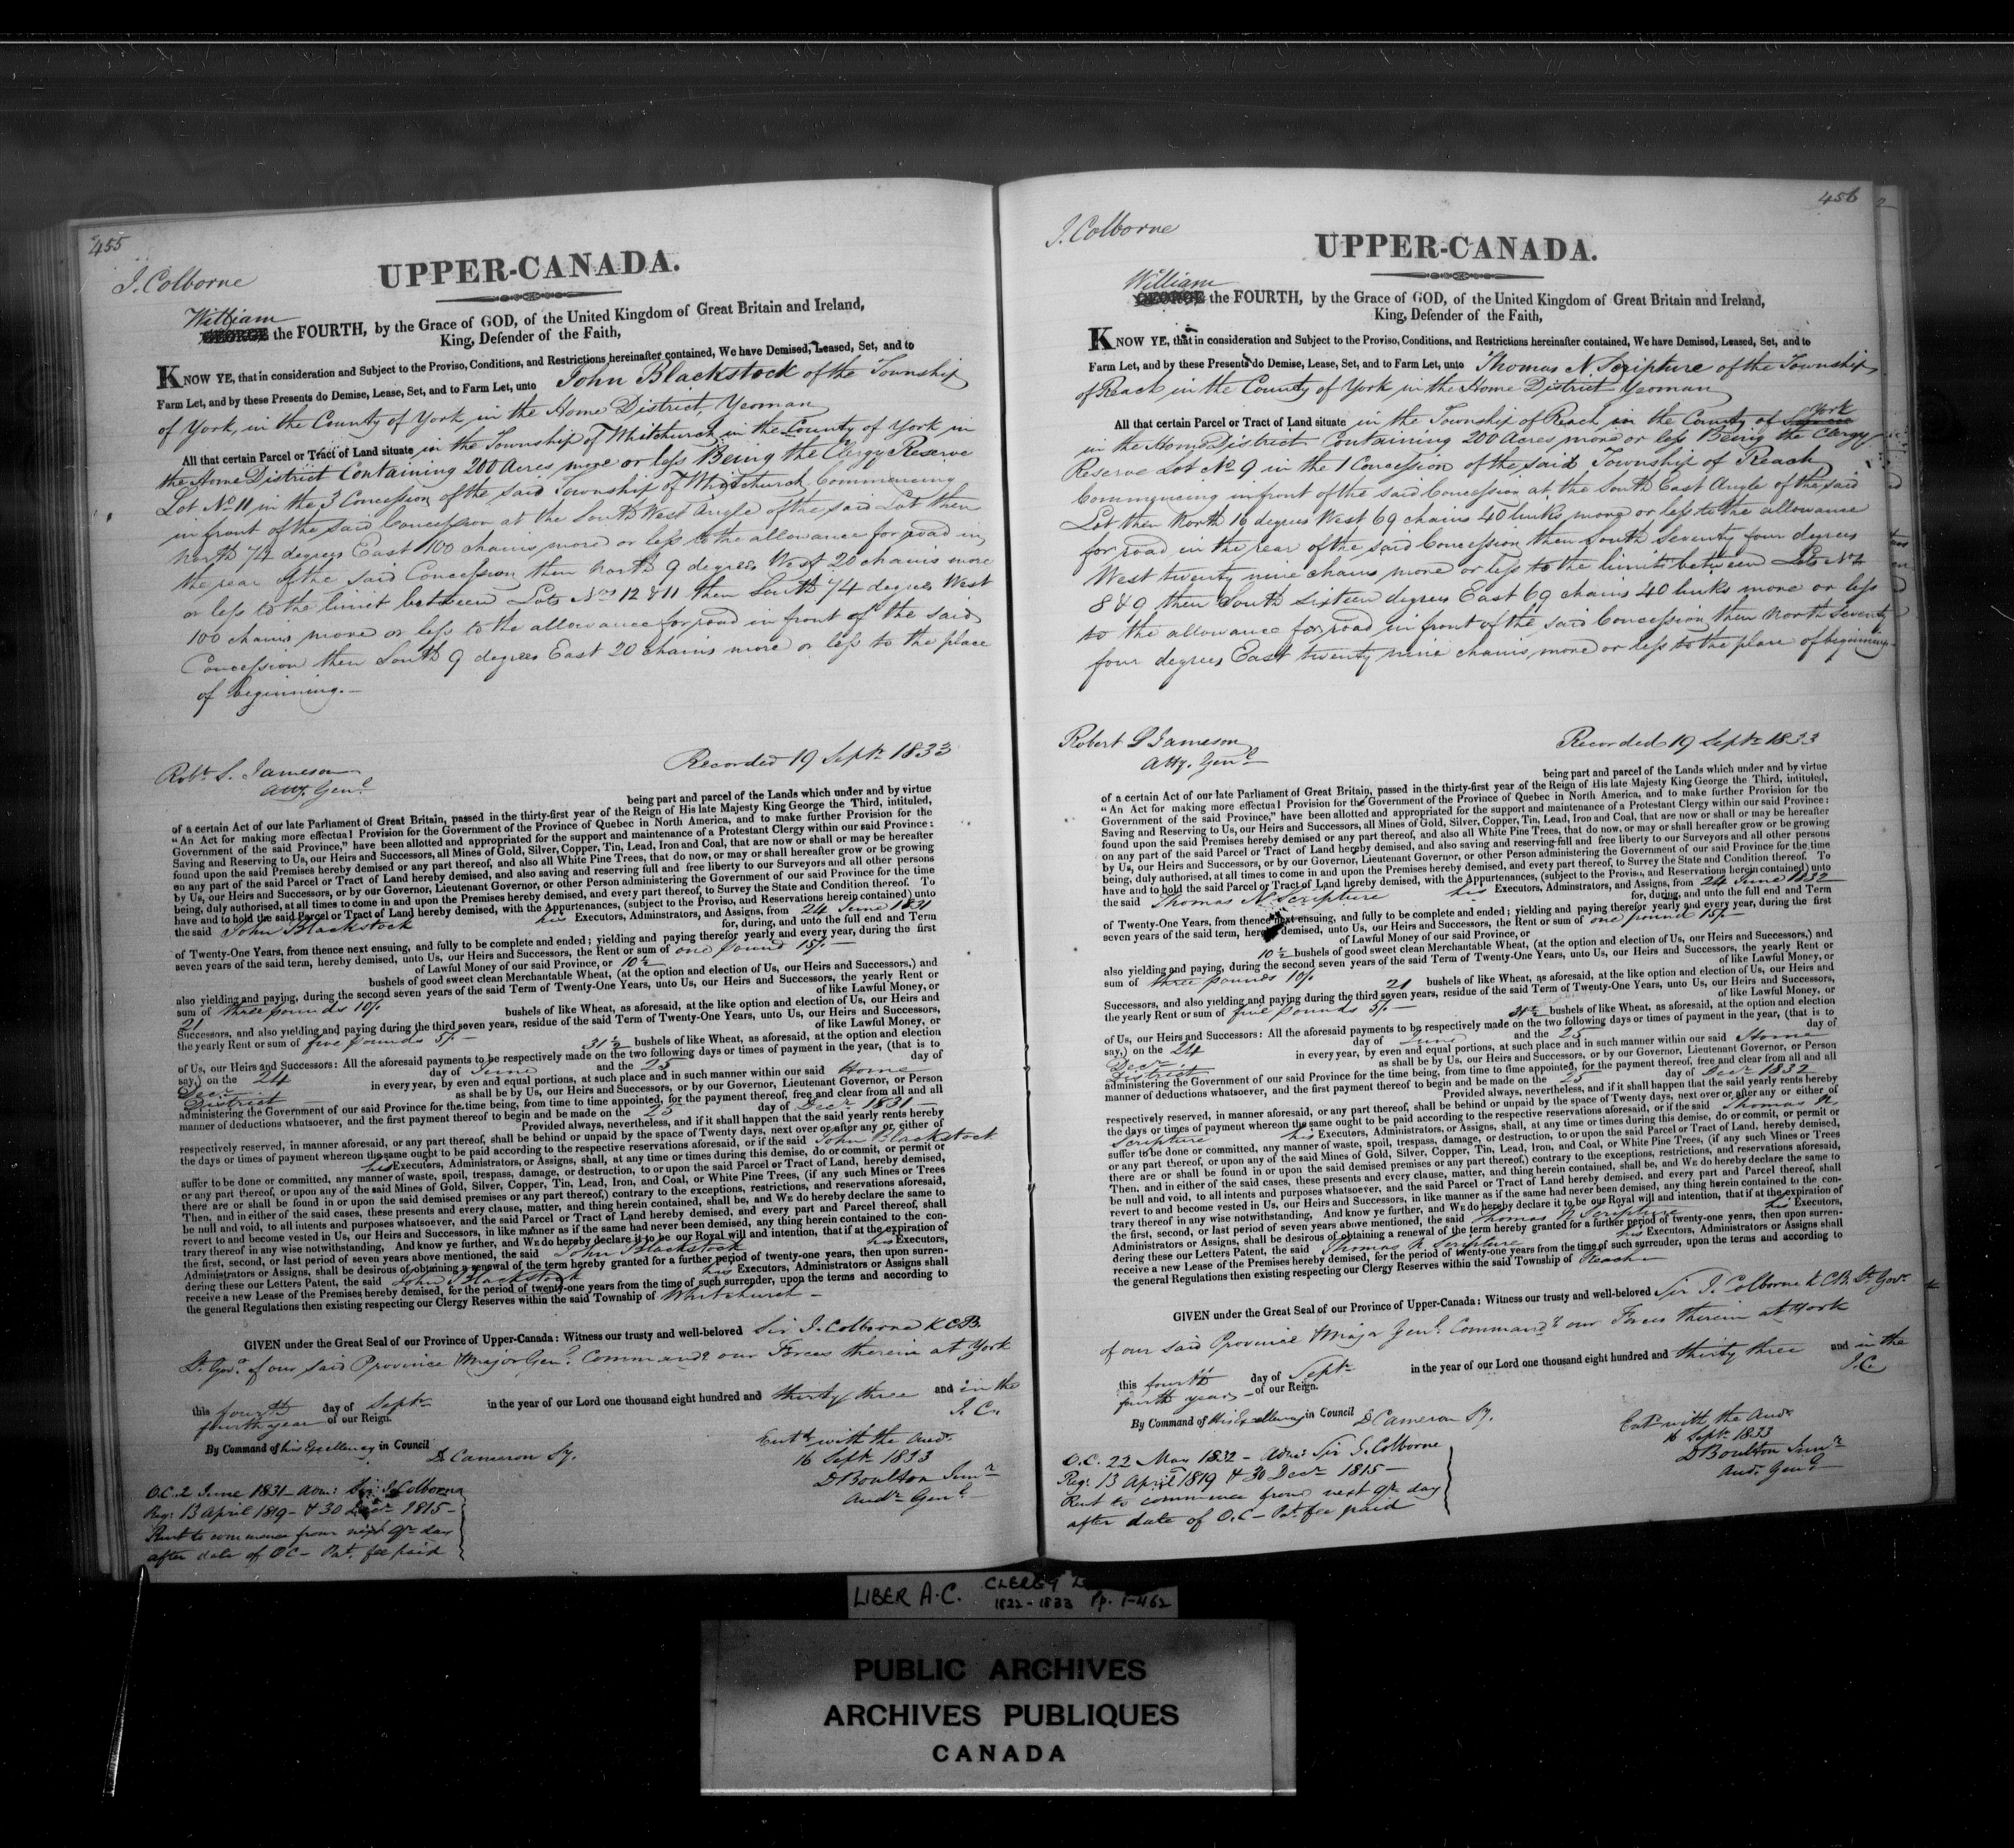 455
J. Colborne
UPPER-CANADA.
William
GEORGE the FOURTH, by the Grace of GOD, of the United Kingdom of Great Britain and Ireland,
King, Defender of the Faith,
KNOW YE, that in consideration and Subject to the Proviso, Conditions, and Restrictions hereinafter contained, We have Demised, Leased, Set, and to
Farm Let, and by these Presents do Demise, Lease, Set, and to Farm Let, unto John Blackstock of the Township
of York, in the County of York, in the Home District, Yeoman
All that certain Parcel or Tract of Land situate in the Township of Whitchurch in the County of York in
the Home District Containing 200 Acres more or less Being the Clergy Reserve
Lot No 11 in the 3 Concession of the said Township of Whitchurch Commencing
in front of the said Concession at the South West Angle of the said Lot then
North 74 degrees East 100 chains more or less to the allowance for road in
the rear of the said Concession then North 9 degrees West 20 chains more
or less to the limit between Lots Nos 12 & 11 then South 74 degrees West
100 chains more or less to the allowance for road in front of the said
Concession then South 9 degrees East 20 chains more or less to the place
of beginning.—
Recorded 19 Septr 1833
Robt S. Jameson
Atty. Genl
being part and parcel of the Lands which under and by virtue
of a certain Act of our late Parliament of Great Britain, passed in the thirty-first year of the Reign of His late Majesty King George the Third, intituled,
"An Act for making more effectual Provision for the Government of the Province of Quebec in North America, and to make further Provision for the
Government of the said Province," have been allotted and appropriated for the support and maintenance of a Protestant Clergy within our said Province:
Saving and Reserving to Us, our Heirs and Successors, all Mines of Gold, Silver, Copper, Tin, Lead, Iron and Coal, that are now or shall or may be hereafter
found upon the said Premises hereby demised or any part thereof, and also all White Pine Trees, that do now, or may or shall hereafter grow or be growing
on any part of the said Parcel or Tract of Land hereby demised, and also saving and reserving full and free liberty to our Surveyors and all other persons
by Us, our Heirs and Successors, or by our Governor, Lieutenant Governor, or other Person administering the Government of our said Province for the time
being, duly authorised, at all times to come in and upon the Premises hereby demised, and every part thereof, to Survey the State and Condition thereof. To
have and to hold the said Parcel or Tract of Land hereby demised, with the Appurtenances, (subject to the Proviso, and Reservations herein contained) unto
the said John Blackstock his Executors, Adminstrators, and Assigns, from 24 June 1831
for, during, and unto the full end and Term
of Twenty-One Years, from thence next ensuing, and fully to be complete and ended; yielding and paying therefor yearly and every year, during the first
seven years of the said term, hereby demised, unto Us, our Heirs and Successors, the Rent or sum of one pound 15/. —
of Lawful Money of our said Province, or 10½
bushels of good sweet clean Merchantable Wheat, (at the option and election of Us, our Heirs and Successors,) and
also yielding and paying, during the second seven years of the said Term of Twenty-One Years, unto Us, our Heirs and Successors, the yearly Rent or
sum of three pounds 10/. of like Lawful Money, or
21 bushels of like Wheat, as aforesaid, at the like option and election of Us, our Heirs and
Successors, and also yielding and paying during the third seven years, residue of the said Term of Twenty-One Years, unto Us, our Heirs and Successors,
the yearly Rent or sum of five pounds 5/. — of like Lawful Money, or
31½ bushels of like Wheat, as aforesaid, at the option and election
of Us, our Heirs and Successors: All the aforesaid payments to be respectively made on the two following days or times of payment in the year, (that is to
say,) on the 24 day of June and the 25 day of
Decr in every year, by even and equal portions, at such place and in such manner within our said Home
District as shall be by Us, our Heirs and Successors, or by our Governor, Lieutenant Governor, or Person
administering the Government of our said Province for the time being, from time to time appointed, for the payment thereof, free and clear from all and all
manner of deductions whatsoever, and the first payment thereof to begin and be made on the 25 day of Decr 1831 —
Provided always, nevertheless, and if it shall happen that the said yearly rents hereby
respectively reserved, in manner aforesaid, or any part thereof, shall be behind or unpaid by the space of Twenty days, next over or after any or either of
the days or times of payment whereon the same ought to be paid according to the respective reservations aforesaid, or if the said John Blackstock
his Executors, Administrators, or Assigns, shall, at any time or times during this demise, do or commit, or permit or
suffer to be done or committed, any manner of waste, spoil, trespass, damage, or destruction, to or upon the said Parcel or Tract of Land, hereby demised,
or any part thereof, or upon any of the said Mines of Gold, Silver, Copper, Tin, Lead, Iron, and Coal, or White Pine Trees, (if any such Mines or Trees
there are or shall be found in or upon the said demised premises or any part thereof,) contrary to the exceptions, restrictions, and reservations aforesaid,
Then, and in either of the said cases, these presents and every clause, matter, and thing herein contained, shall be, and WE do hereby declare the same to
be null and void, to all intents and purposes whatsoever, and the said Parcel or Tract of Land hereby demised, and every part and Parcel thereof, shall
revert to and become vested in Us, our Heirs and Successors, in like manner as if the same had never been demised, any thing herein contained to the con-
trary thereof in any wise notwithstanding, And know ye further, and WE do hereby declare it to be our Royal will and intention, that if at the expiration of
the first, second, or last period of seven years above mentioned, the said John Blackstock his Executors,
Administrators or Assigns, shall be desirous of obtaining a renewal of the term hereby granted for a further period of twenty-one years, then upon surren-
dering these our Letters Patent, the said John Blackstock his Executors, Administrators or Assigns shall
receive a new Lease of the Premises hereby demised, for the period of twenty-one years from the time of such surrender, upon the terms and according to
the general Regulations then existing respecting our Clergy Reserves within the said Township of Whitchurch —
GIVEN under the Great Seal of our Province of Upper-Canada: Witness our trusty and well-beloved Sir J. Colborne K.C.B.
Lt. Govr of our said Province & Major Genl Commandg our Forces therein at York
this fourth day of Septr in the year of our Lord one thousand eight hundred and thirty three and in the
fourth year of our Reign. J. C.
By Command of his Excellency in Council
D Cameron Sy.
Entd with the Audr
16 Septr 1833
D Boulton Junr
Audr Genl
O.C. 2 June 1831 — Adm: Sir J. Colborne
Reg: 13 April 1819 — & 30 Decr 1815 —
Rent to commence from next qr day
after date of OC — Pat. fee paid
456
J. Colborne
UPPER-CANADA.
William
GEORGE the FOURTH, by the Grace of GOD, of the United Kingdom of Great Britain and Ireland,
King, Defender of the Faith,
KNOW YE, that in consideration and Subject to the Proviso, Conditions, and Restrictions hereinafter contained, We have Demised, Leased, Set, and to
Farm Let, and by these Presents do Demise, Lease, Set, and to Farm Let, unto Thomas N. Scripture of the Township
of Reach in the County of York in the Home District Yeoman
All that certain Parcel or Tract of Land situate in the Township of Reach in the County of York
in the Home District Containing 200 Acres more or less Being the Clergy
Reserve Lot No 9 in the 1 Concession of the said Township of Reach
Commencing in front of the said Concession at the South East Angle of the said
Lot then North 16 degrees West 69 chains 40 links more or less to the allowance
for road in the rear of the said Concession then South Seventy four degrees
West twenty nine chains more or less to the limit between Lots Nos
8 & 9 then South Sixteen degrees East 69 chains 40 links more or less
to the allowance for road in front of the said Concession, then North Seventy
four degrees East twenty nine chains, more or less to the place of beginning.
Robert S Jameson
Atty. Genl
Recorded 19 Septr 1833
being part and parcel of the Lands which under and by virtue
of a certain Act of our late Parliament of Great Britain, passed in the thirty-first year of the Reign of His late Majesty King George the Third, intituled,
"An Act for making more effectual Provision for the Government of the Province of Quebec in North America, and to make further Provision for the
Government of the said Province," have been allotted and appropriated for the support and maintenance of a Protestant Clergy within our said Province:
Saving and Reserving to Us, our Heirs and Successors, all Mines of Gold, Silver, Copper, Tin, Lead, Iron and Coal, that are now or shall or may be hereafter
found upon the said Premises hereby demised or any part thereof, and also all White Pine Trees, that do now, or may or shall hereafter grow or be growing
on any part of the said Parcel or Tract of Land hereby demised, and also saving and reserving full and free liberty to our Surveyors and all other persons
by Us, our Heirs and Successors, or by our Governor, Lieutenant Governor, or other Person administering the Government of our said Province for the time
being, duly authorised, at all times to come in and upon the Premises hereby demised, and every part thereof, to Survey the State and Condition thereof. To
have and to hold the said Parcel or Tract of Land hereby demised, with the Appurtenances, (subject to the Proviso, and Reservations herein contained) unto
the said Thomas N Scripture his Executors, Adminstrators, and Assigns, from 24 June 1832
for, during, and unto the full end and Term
of Twenty-One Years, from thence next ensuing, and fully to be complete and ended; yielding and paying therefor yearly and every year, during the first
seven years of the said term, hereby demised, unto Us, our Heirs and Successors, the Rent or sum of one pound 15/. —
of Lawful Money of our said Province, or
10½ bushels of good sweet clean Merchantable Wheat, (at the option and election of Us, our Heirs and Successors,) and
also yielding and paying, during the second seven years of the said Term of Twenty-One Years, unto Us, our Heirs and Successors, the yearly Rent or
sum of three pounds 10/. of like Lawful Money, or
21 bushels of like Wheat, as aforesaid, at the like option and election of Us, our Heirs and
Successors, and also yielding and paying during the third seven years, residue of the said Term of Twenty-One Years, unto Us, our Heirs and Successors,
the yearly Rent or sum of five pounds 5/. — of like Lawful Money, or
31½ bushels of like Wheat, as aforesaid, at the option and election
of Us, our Heirs and Successors: All the aforesaid payments to be respectively made on the two following days or times of payment in the year, (that is to
say,) on the 24 day of June and the 25 day of
Decr in every year, by even and equal portions, at such place and in such manner within our said Home
District as shall be by Us, our Heirs and Successors, or by our Governor, Lieutenant Governor, or Person
administering the Government of our said Province for the time being, from time to time appointed, for the payment thereof, free and clear from all and all
manner of deductions whatsoever, and the first payment thereof to begin and be made on the 25 day of Decr 1832
Provided always, nevertheless, and if it shall happen that the said yearly rents hereby
respectively reserved, in manner aforesaid, or any part thereof, shall be behind or unpaid by the space of Twenty days, next over or after any or either of
the days or times of payment whereon the same ought to be paid according to the respective reservations aforesaid, or if the said Thomas N.
Scripture his Executors, Administrators, or Assigns, shall, at any time or times during this demise, do or commit, or permit or
suffer to be done or committed, any manner of waste, spoil, trespass, damage, or destruction, to or upon the said Parcel or Tract of Land, hereby demised,
or any part thereof, or upon any of the said Mines of Gold, Silver, Copper, Tin, Lead, Iron, and Coal, or White Pine Trees, (if any such Mines or Trees
there are or shall be found in or upon the said demised premises or any part thereof,) contrary to the exceptions, restrictions, and reservations aforesaid,
Then, and in either of the said cases, these presents and every clause, matter, and thing herein contained, shall be, and WE do hereby declare the same to
be null and void, to all intents and purposes whatsoever, and the said Parcel or Tract of Land hereby demised, and every part and Parcel thereof, shall
revert to and become vested in Us, our Heirs and Successors, in like manner as if the same had never been demised, any thing herein contained to the con-
trary thereof in any wise notwithstanding, And know ye further, and WE do hereby declare it to be our Royal will and intention, that if at the expiration of
the first, second, or last period of seven years above mentioned, the said Thomas N Scripture his Executors,
Administrators or Assigns, shall be desirous of obtaining a renewal of the term hereby granted for a further period of twenty-one years, then upon surren-
dering these our Letters Patent, the said Thomas N Scripture his Executors, Administrators or Assigns shall
receive a new Lease of the Premises hereby demised, for the period of twenty-one years from the time of such surrender, upon the terms and according to
the general Regulations then existing respecting our Clergy Reserves within the said Township of Reach —
GIVEN under the Great Seal of our Province of Upper-Canada: Witness our trusty and well-beloved Sir J. Colborne K.C.B. Lt. Govr
of our said Province & Major Genl Commandg our Forces therein at York
this fourth day of Septr in the year of our Lord one thousand eight hundred and thirty three and in the
fourth year — of our Reign. J.C.
By Command of His Excellency in Council D Cameron Sy.
Entd with the Audr
16 Septr 1833
D Boulton Junr
Audr Genl
O.C. 22 May 1832 — Adm: Sir J. Colborne
Reg: 13 April 1819 & 30 Decr 1815 —
Rent to commence from next qr day
after date of O.C — Pat. fee paid
LIBER A.C. CLERGY
1822-1833 Pp. 1-462
PUBLIC ARCHIVES
ARCHIVES PUBLIQUES
CANADA